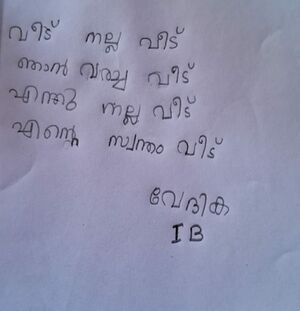 വീട് നല്ല വീട്
ഞാൻ വരച്ച വീട്
എന്തു നല്ല വീട്
എന്റെ സ്വന്തം വീട്
വേദിക
I B